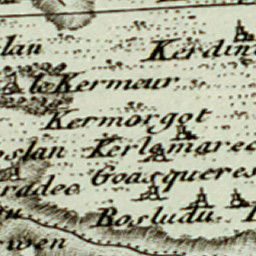 slan
Kerdini
le Kermeur
Kermorgot
oslan
Kerlamarec
Goasqueres
radec
Bosludu
wen